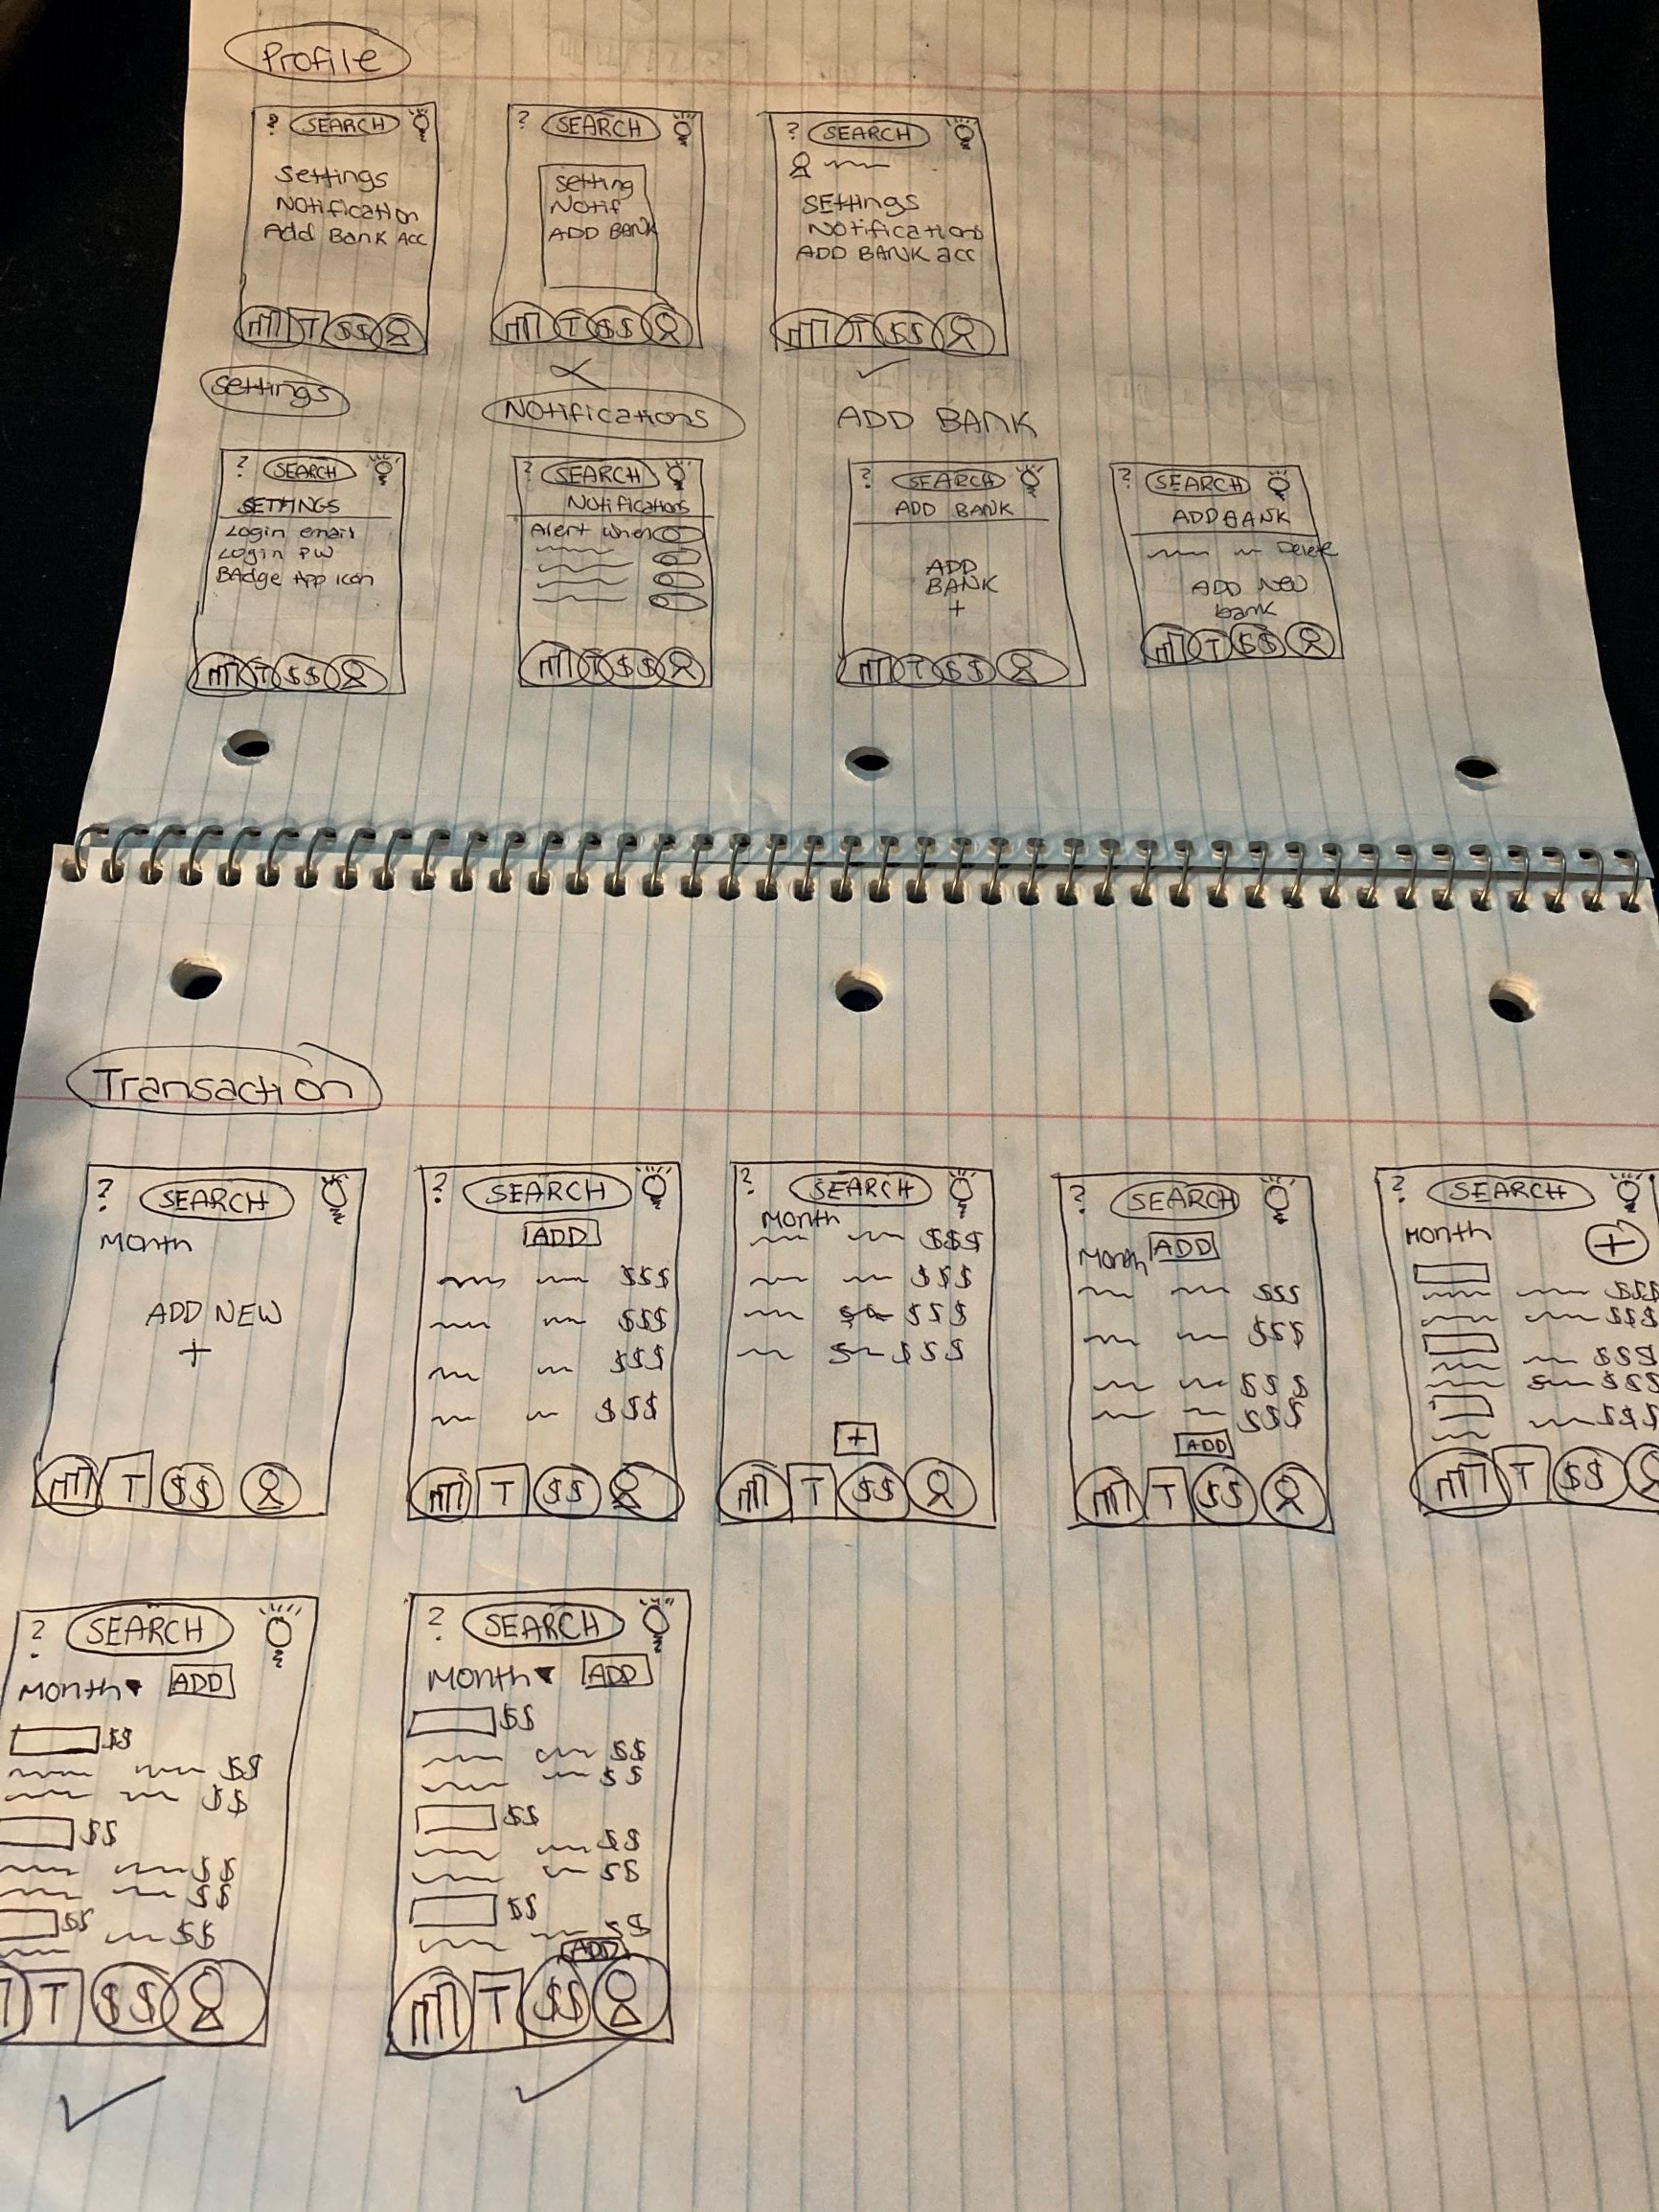 Profile
? SEARCH
Settings
Notification
Add Bank Acc
T $$
? SEARCH
Setting
Notif
ADD BANK
T $$
? SEARCH
SEttings
Notifications
ADD BANK acc
T $$
Settings
? SEARCH
SETTINGS
Login email
Login PW
BAdge App icon
T $$
Notifications
? SEARCH
Notifications
Alert when
T $$
ADD BANK
? SEARCH
ADD BANK
ADD
BANK
+
T $$
? SEARCH
ADD BANK
Delete
ADD NEW
bank
T $$
Transaction
? SEARCH
Month
ADD NEW
+
T $$
? SEARCH
ADD
$$$
$$$
$$$
$$$
T $$
? SEARCH
Month
$$$
$$$
$$$
$$$
+
T $$
? SEARCH
Month ADD
$$$
$$$
$$$
$$$
ADD
T $$
? SEARCH
Month +
$$$
$$$
$$$
$$$
$$$
T $$
? SEARCH
Month ADD
$$
$$
$$
$$
$$
$$
$$
$$
T $$
? SEARCH
Month ADD
$$
$$
$$
$$
$$
$$
$$
$$
ADD
T $$